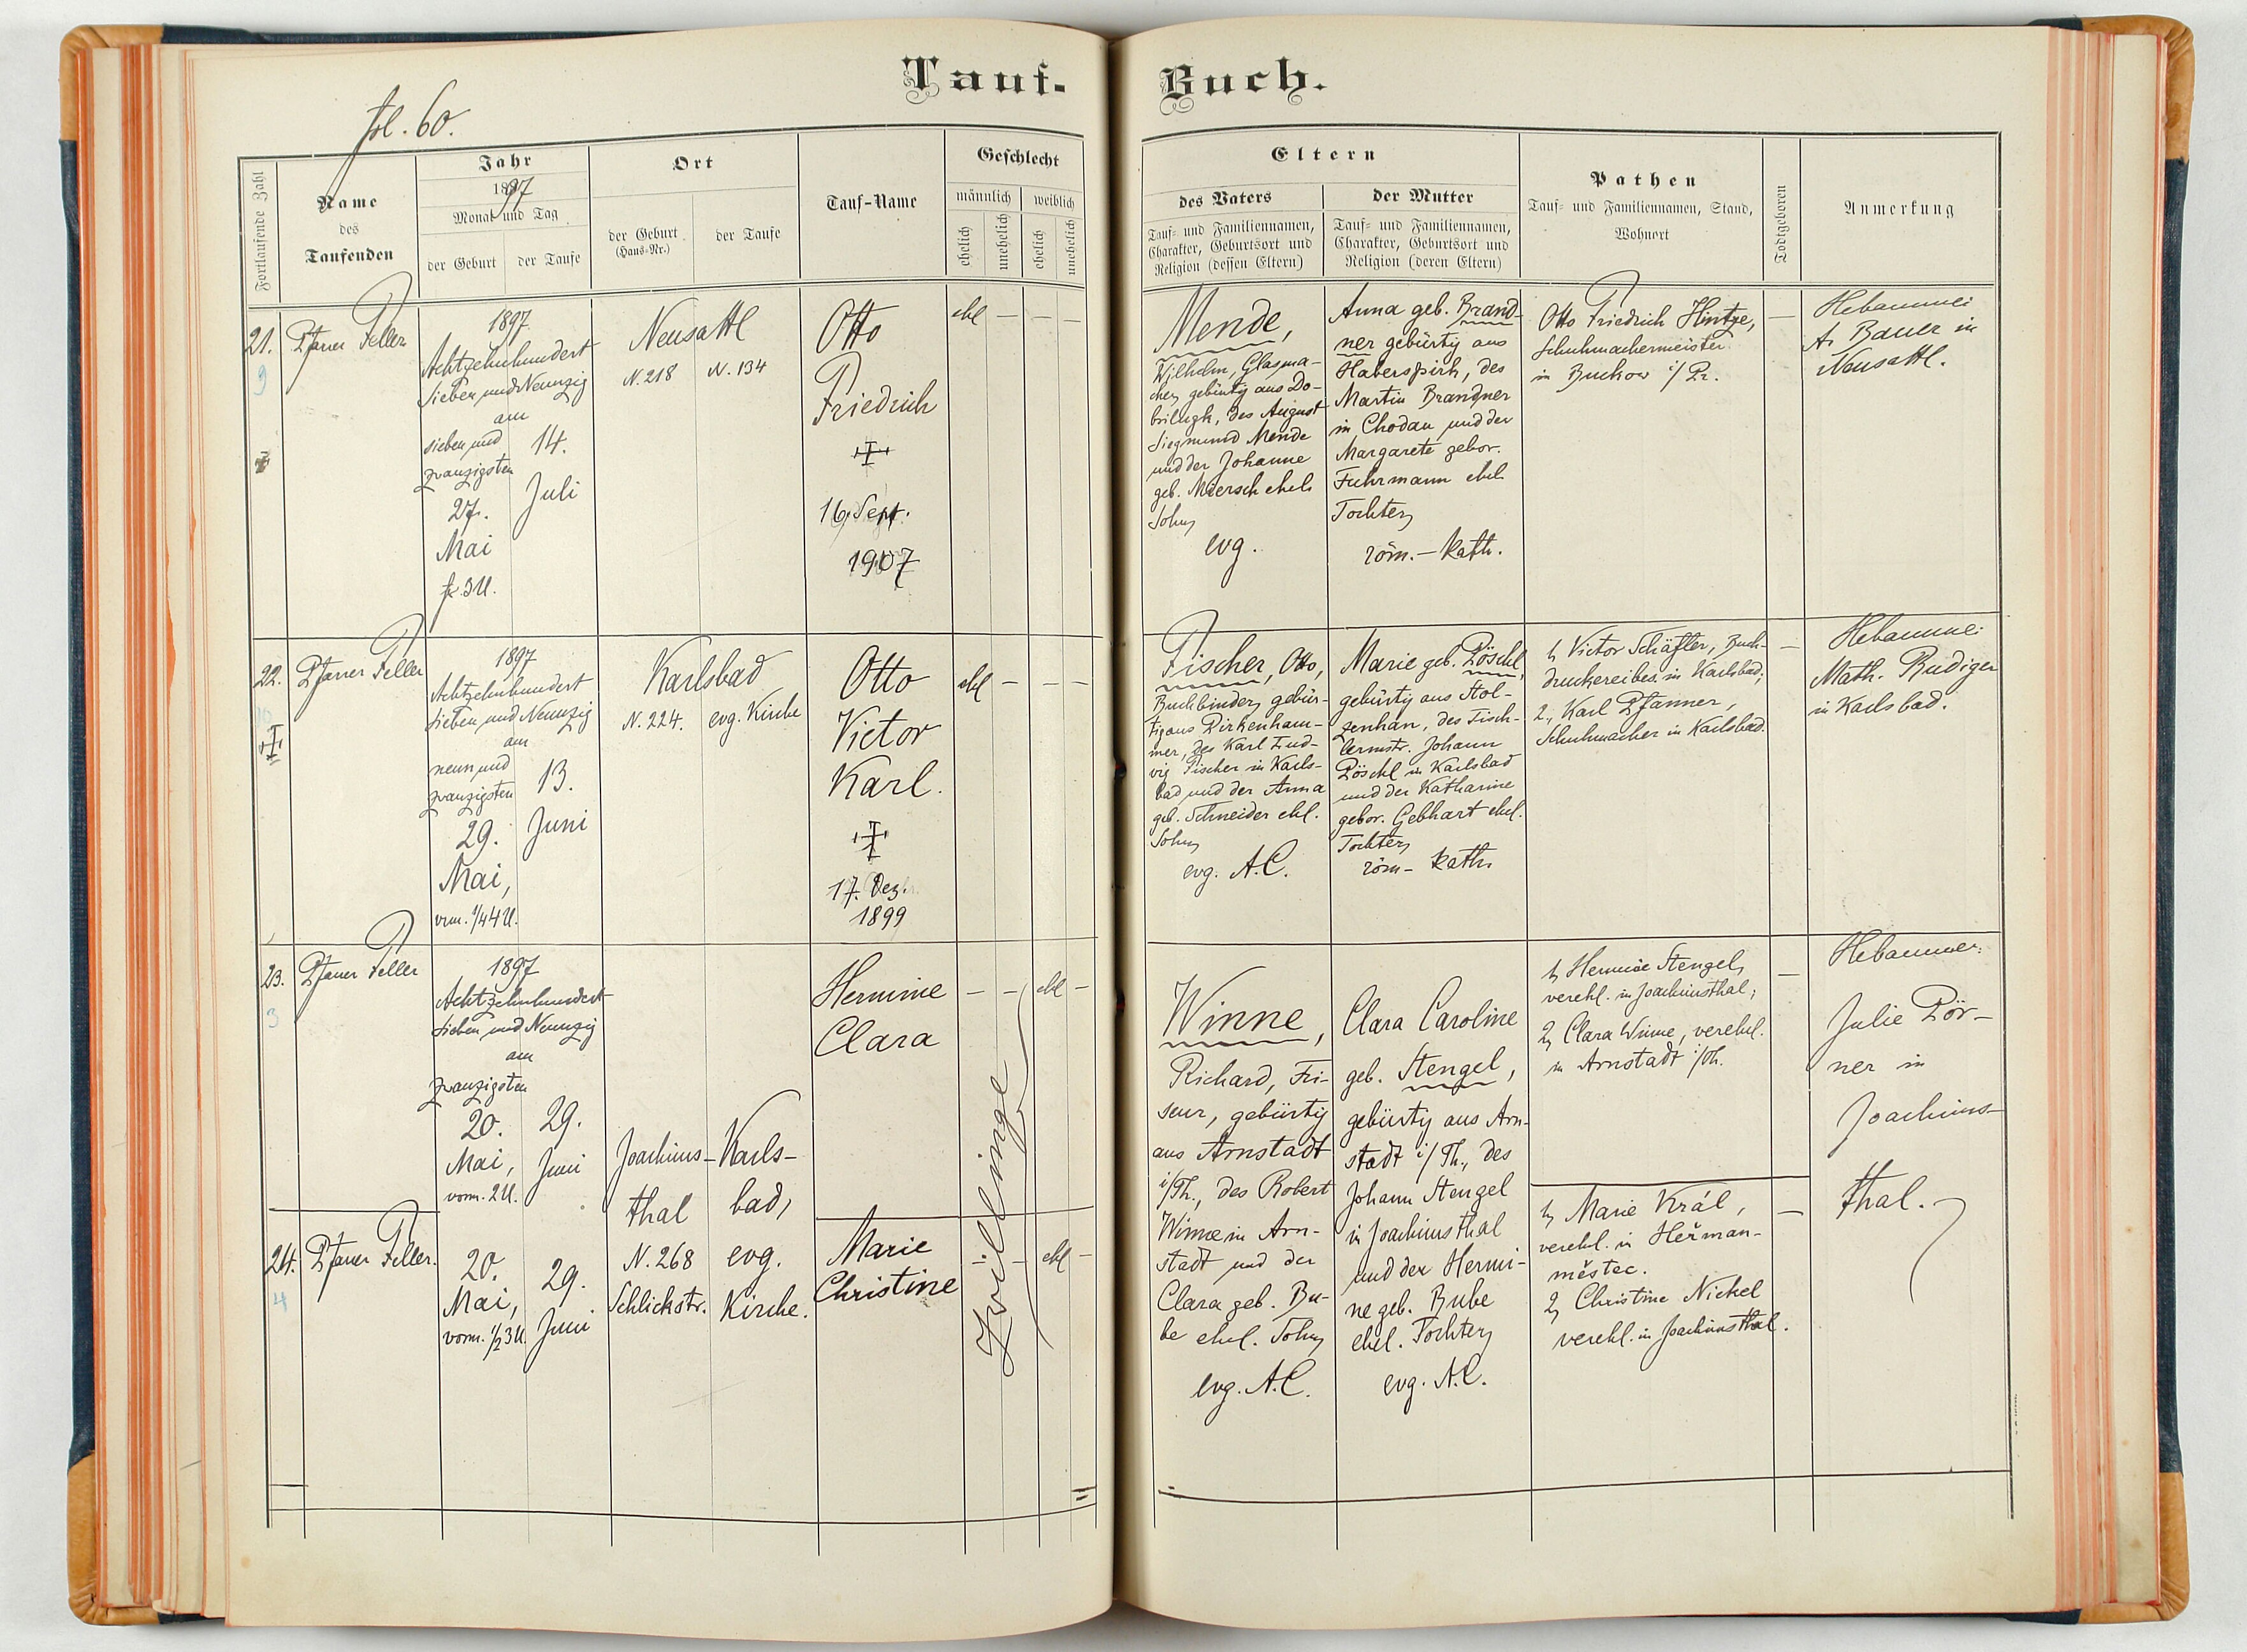 Tauf-
Buch.
fol. 60.
Fortlaufende Zahl
Name
des
Taufenden
Jahr
1897
Monat und Tag
der Geburt
der Taufe
Ort
der Geburt
(Haus-Nr.)
der Taufe
Tauf-Name
Geschlecht
männlich
weiblich
ehelich
unehelich
ehelich
unehelich
Eltern
des Vaters
Tauf- und Familiennamen,
Charakter, Geburtsort und
Religion (dessen Eltern)
der Mutter
Tauf- und Familiennamen,
Charakter, Geburtsort und
Religion (deren Eltern)
Pathen
Tauf- und Familiennamen, Stand,
Wohnort
Todtgeboren
Anmerkung
21.
9
Pfarrer Feller
1897
Achtzehnhundert
Sieben und Neunzig
am
sieben und
zwanzigsten
27.
Mai
fr. 3 U.
14.
Juli
Neusattl
N. 218
N. 134
Otto
Friedrich
16. Sept.
1907
ehl
—
—
—
Mende,
Wilhelm, Glasma-
cher, gebürtig aus Do-
brilugk, des August
Siegmund Mende
und der Johanne
geb. Miersch ehel.
Sohn
evg.
Anna geb. Brand-
ner gebürtig aus
Haberspirk, des
Martin Brandner
in Chodau und der
Margarete gebor.
Fuhrmann ehel.
Tochter,
röm.-kath.
Otto Friedrich Hintze,
Schuhmachermeister
in Buckow i/Pr.
—
Hebamme:
A. Bauer in
Neusattl.
22.
Pfarrer Feller
1897
Achtzehnhundert
Sieben und Neunzig
am
neun und
zwanzigsten
29.
Mai,
vrm. 1/4 4 U.
13.
Juni
Karlsbad
N. 224.
evg. Kirche
Otto
Victor
Karl.
17. Dez.
1899
ehl
—
—
—
Fischer, Otto,
Buchbinder, gebür-
tig aus Pirkenham-
mer, des Karl Lud-
wig Fischer in Karls-
bad und der Anna
geb. Schneider ehl.
Sohn,
evg. A.C.
Marie geb. Pöschl,
gebürtig aus Stol-
zenhan, des Tisch-
lermstr. Johann
Pöschl in Karlsbad
und der Katharine
gebor. Gebhart ehel.
Tochter,
röm-kath.
1, Victor Schäfler, Buch-
druckereibes. in Karlsbad;
2, Karl Pfanner,
Schuhmacher in Karlsbad.
—
Hebamme:
Math. Rudiger
in Karlsbad.
23.
3
Pfarrer Feller
1897
Achtzehnhundert
Sieben und Neunzig
am
zwanzigsten
20.
Mai,
vorm. 2 U.
29.
Juni
Joachims-
thal
N. 268
Schlickstr.
Karls-
bad,
evg.
Kirche.
Hermine
Clara
—
—
ehl
—
Zwillinge
Winne,
Richard, Fri-
seur, gebürtig
aus Arnstadt
i/Th., des Robert
Winne in Arn-
stadt und der
Clara geb. Bu-
be ehel. Sohn,
evg. A.C.
Clara Caroline
geb. Stengel,
gebürtig aus Arn-
stadt i/Th., des
Johann Stengel
in Joachimsthal
und der Hermi-
ne geb. Bube
ehel. Tochter,
evg. A.C.
1, Hermine Stengel,
verehl. in Joachimsthal;
2, Clara Winne, verehel.
in Arnstadt i/Th.
—
Hebamme:
Julie Pör-
ner in
Joachims-
thal.
24.
4
Pfarrer Feller.
20.
Mai,
vorm. 1/2 3 U.
29.
Juni
Marie
Christine
—
—
ehl
—
1, Marie Král,
verehl. in Heřman-
městec.
2, Christine Nickel
verehl. in Joachimsthal.
—